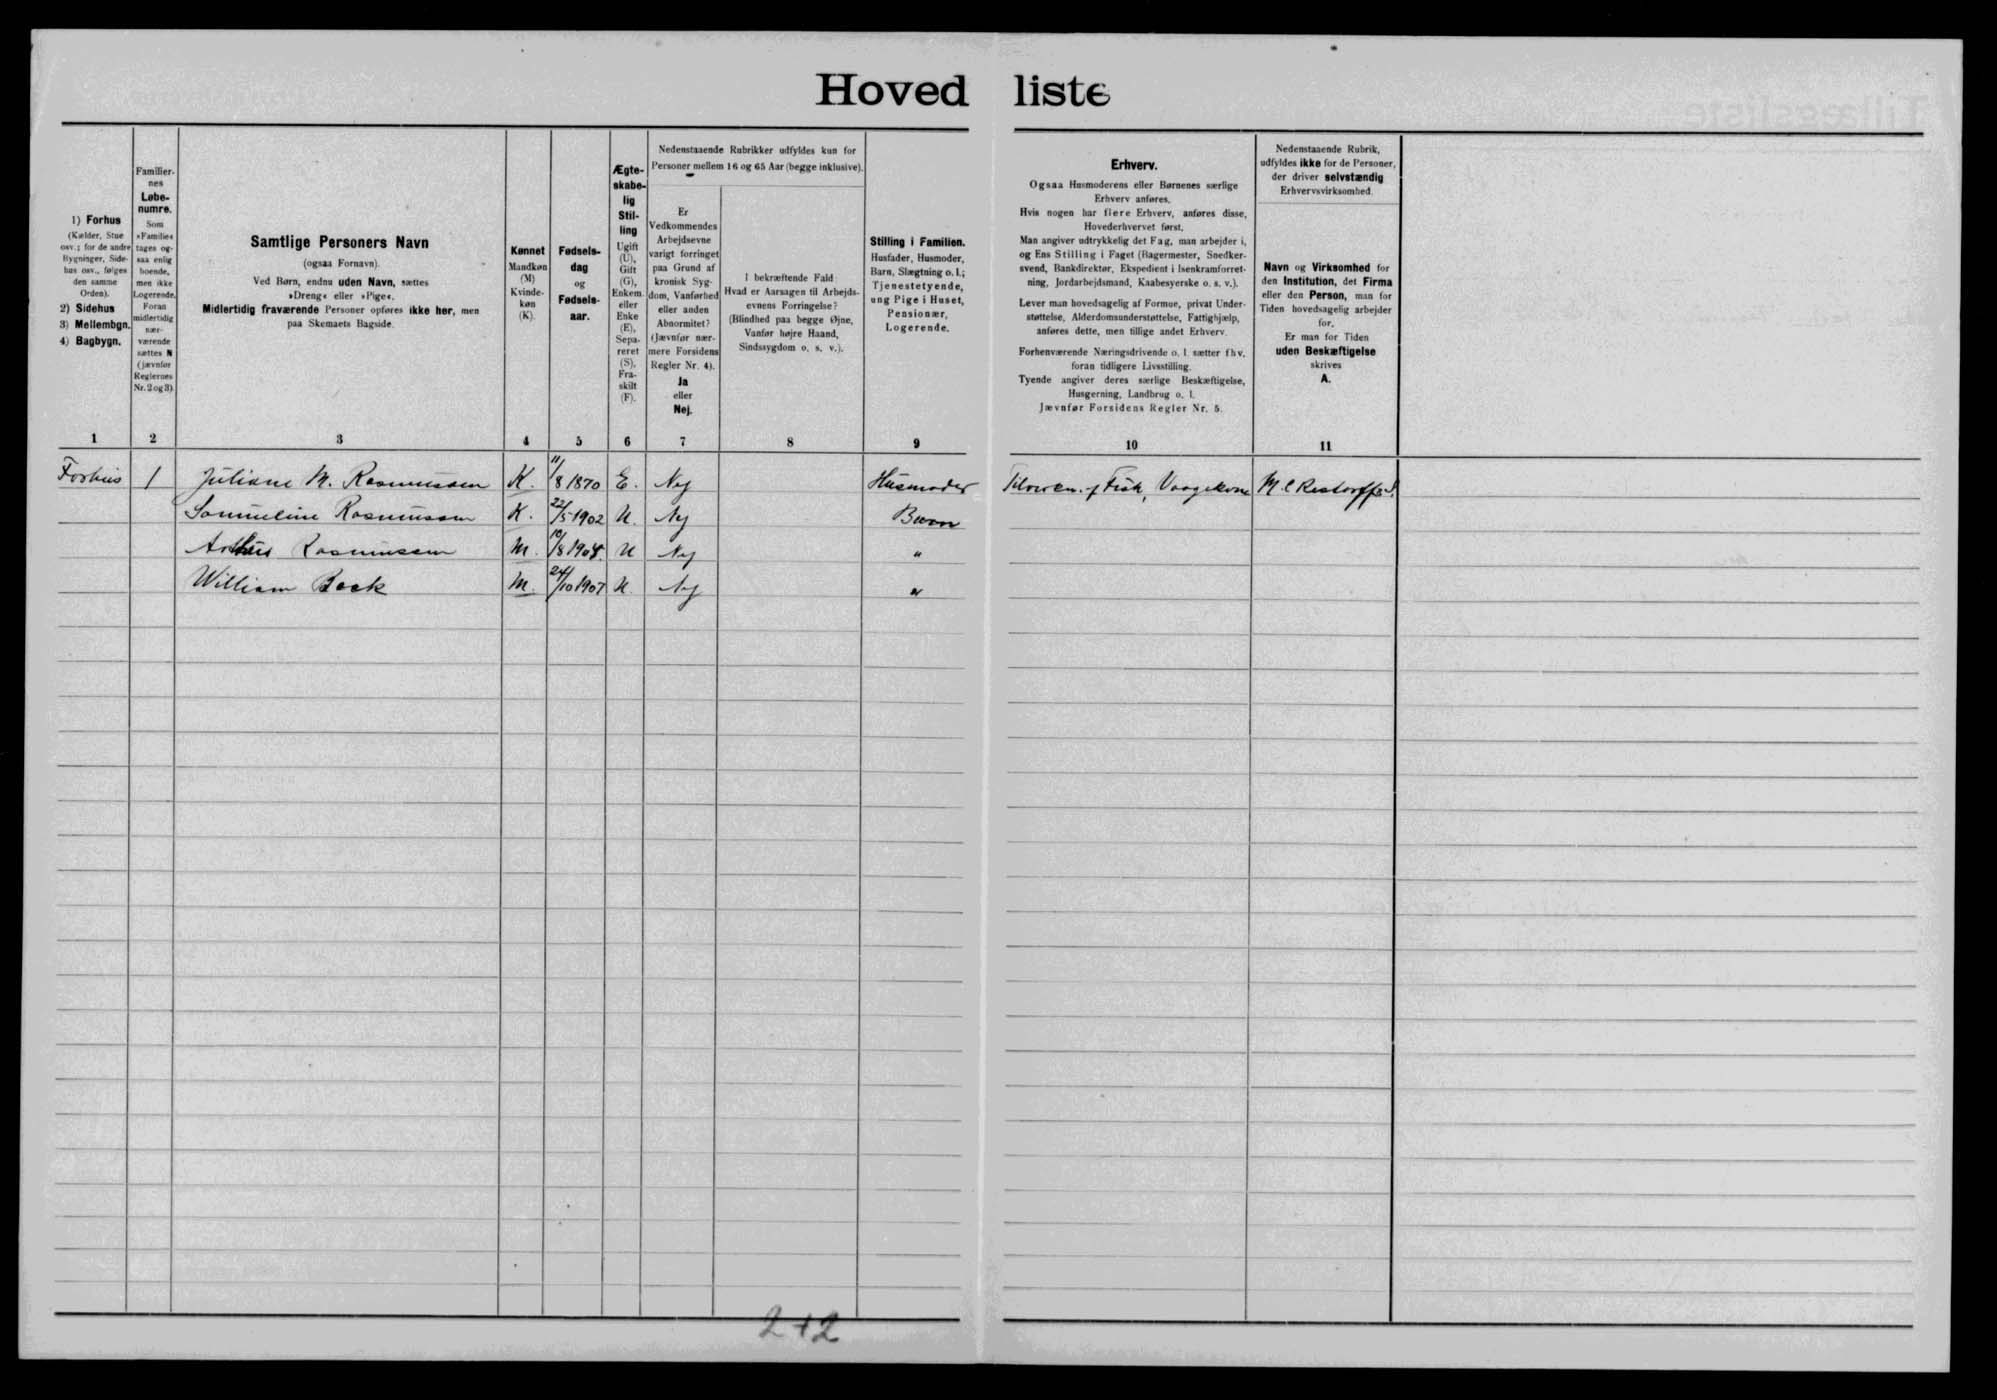 Hovedliste
1) Forhus
(Kælder, Stue
osv.; for de andre
Bygninger, Side-
hus osv., følges
den samme
Orden).
2) Sidehus
3) Mellembgn.
4) Bagbygn.
Familier-
nes
Løbe-
numre.
Som
»Familie«
tages og-
saa enlig
boende,
men ikke
Logerende.
Foran
midlertidig
nær-
værende
sættes N
(jævnfør
Reglernes
Nr. 2 og 3).
Samtlige Personers Navn
(ogsaa Fornavn).
Ved Børn, endnu uden Navn, sættes
»Dreng« eller »Pige«.
Midlertidig fraværende Personer opføres ikke her, men
paa Skemaets Bagside.
Kønnet
Mandkøn
(M)
Kvinde-
køn
(K).
Fødsels-
dag
og
Fødsels-
aar.
Ægte-
skabe-
lig
Stil-
ling
Ugift
(U),
Gift
(G),
Enkem.
eller
Enke
(E),
Sepa-
reret
(S),
Fra-
skilt
(F).
Nedenstaaende Rubrikker udfyldes kun for
Personer mellem 16 og 65 Aar (begge inklusive).
Er
Vedkommendes
Arbejdsevne
varigt forringet
paa Grund af
kronisk Syg-
dom, Vanførhed
eller anden
Abnormitet?
(Jævnfør nær-
mere Forsidens
Regler Nr. 4).
Ja
eller
Nej.
I bekræftende Fald:
Hvad er Aarsagen til Arbejds-
evnens Forringelse?
(Blindhed paa begge Øjne,
Vanfør højre Haand,
Sindssygdom o. s. v.).
Stilling i Familien.
Husfader, Husmoder,
Barn, Slægtning o. l.;
Tjenestetyende,
ung Pige i Huset,
Pensionær,
Logerende.
Erhverv.
Ogsaa Husmoderens eller Børnenes særlige
Erhverv anføres.
Hvis nogen har flere Erhverv, anføres disse,
Hovederhvervet først.
Man angiver udtrykkelig det Fag, man arbejder i,
og Ens Stilling i Faget (Bagermester, Snedker-
svend, Bankdirektør, Ekspedient i Isenkramforret-
ning, Jordarbejdsmand, Kaabesyerske o. s. v.).
Lever man hovedsagelig af Formue, privat Under-
støttelse, Alderdomsunderstøttelse, Fattighjælp,
anføres dette, men tillige andet Erhverv.
Forhenværende Næringsdrivende o. l. sætter fhv.
foran tidligere Livsstilling.
Tyende angiver deres særlige Beskæftigelse,
Husgerning, Landbrug o. l.
Jævnfør Forsidens Regler Nr. 5.
Nedenstaaende Rubrik,
udfyldes ikke for de Personer,
der driver selvstændig
Erhvervsvirksomhed.
Navn og Virksomhed for
den Institution, det Firma
eller den Person, man for
Tiden hovedsagelig arbejder
for.
Er man for Tiden
uden Beskæftigelse
skrives
A.
1 2 3 4 5 6 7 8 9 10 11
Forhus 1 Juliane M. Rasmussen K. 11/8 1870 E. Nej Husmoder Fisk, M. C. Restorff
Samueline Rasmussen K. 22/5 1902 U. Nej Barn
Rasmussen M. 10/8 U Nej "
William Beck M. 24/10 1907 U. Nej "
2+2